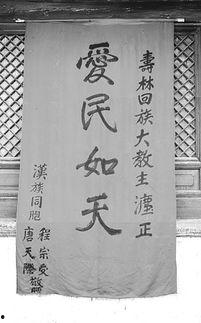 壽林回族大教主瀍正
愛民如天
漢族同胞
程宗愛
唐天際敬贈